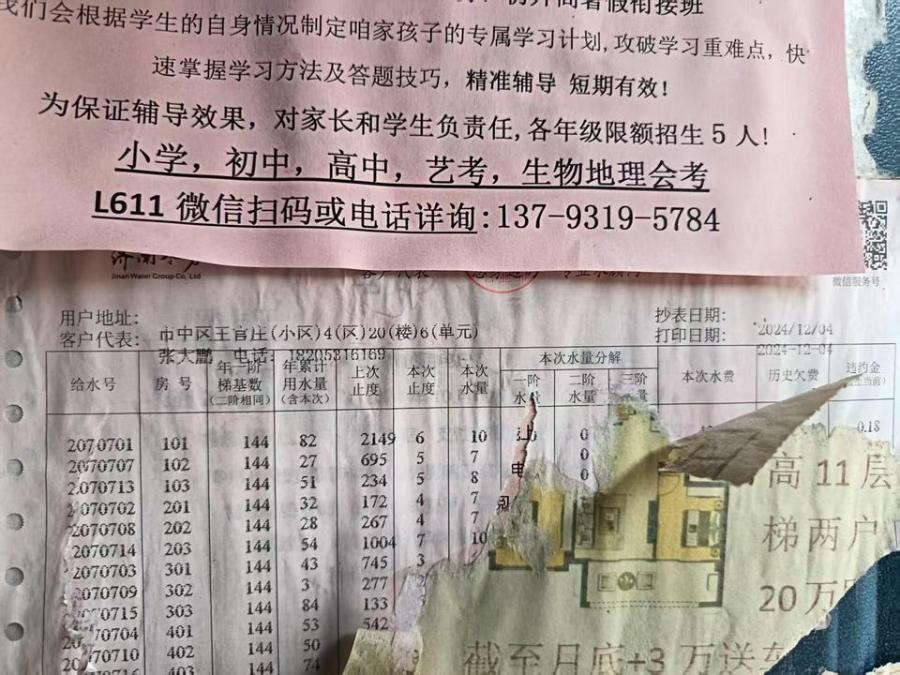 我们会根据学生的自身情况制定咱家孩子的专属学习计划,攻破学习重难点，快
速掌握学习方法及答题技巧，精准辅导 短期有效!
为保证辅导效果，对家长和学生负责任,各年级限额招生5人!
小学，初中，高中，艺考，生物地理会考
L611 微信扫码或电话详询:137-9319-5784
Jinan Water Group Co., Ltd
微信服务号
用户地址: 市中区王官庄(小区)4(区)20(楼)6(单元)
抄表日期: 2024/12/04
客户代表: 张大鹏 电话: 18205316169
打印日期: 2024-12-04
给水号 房号 年一阶梯基数(二阶相同) 年累计用水量(含本次) 上次止度 本次止度 本次水量 本次水量分解 一阶水量 二阶水量 三阶 本次水费 历史欠费 违约金
2070701 101 144 82 2149 6 10 0 0.18
2070707 102 144 27 695 5 7 0
2070713 103 144 51 234 5 8 0
2070702 201 144 32 172 4 7
2070708 202 144 28 267 4 7
2070714 203 144 54 1004 7 10
2070703 301 144 43 745 3
2070709 302 144 3 277
2070715 303 144 84 133
2070704 401 144 53 542
2070710 402 144 50
403 144 74
高11层
梯两户
20万
截至月底+3万送车